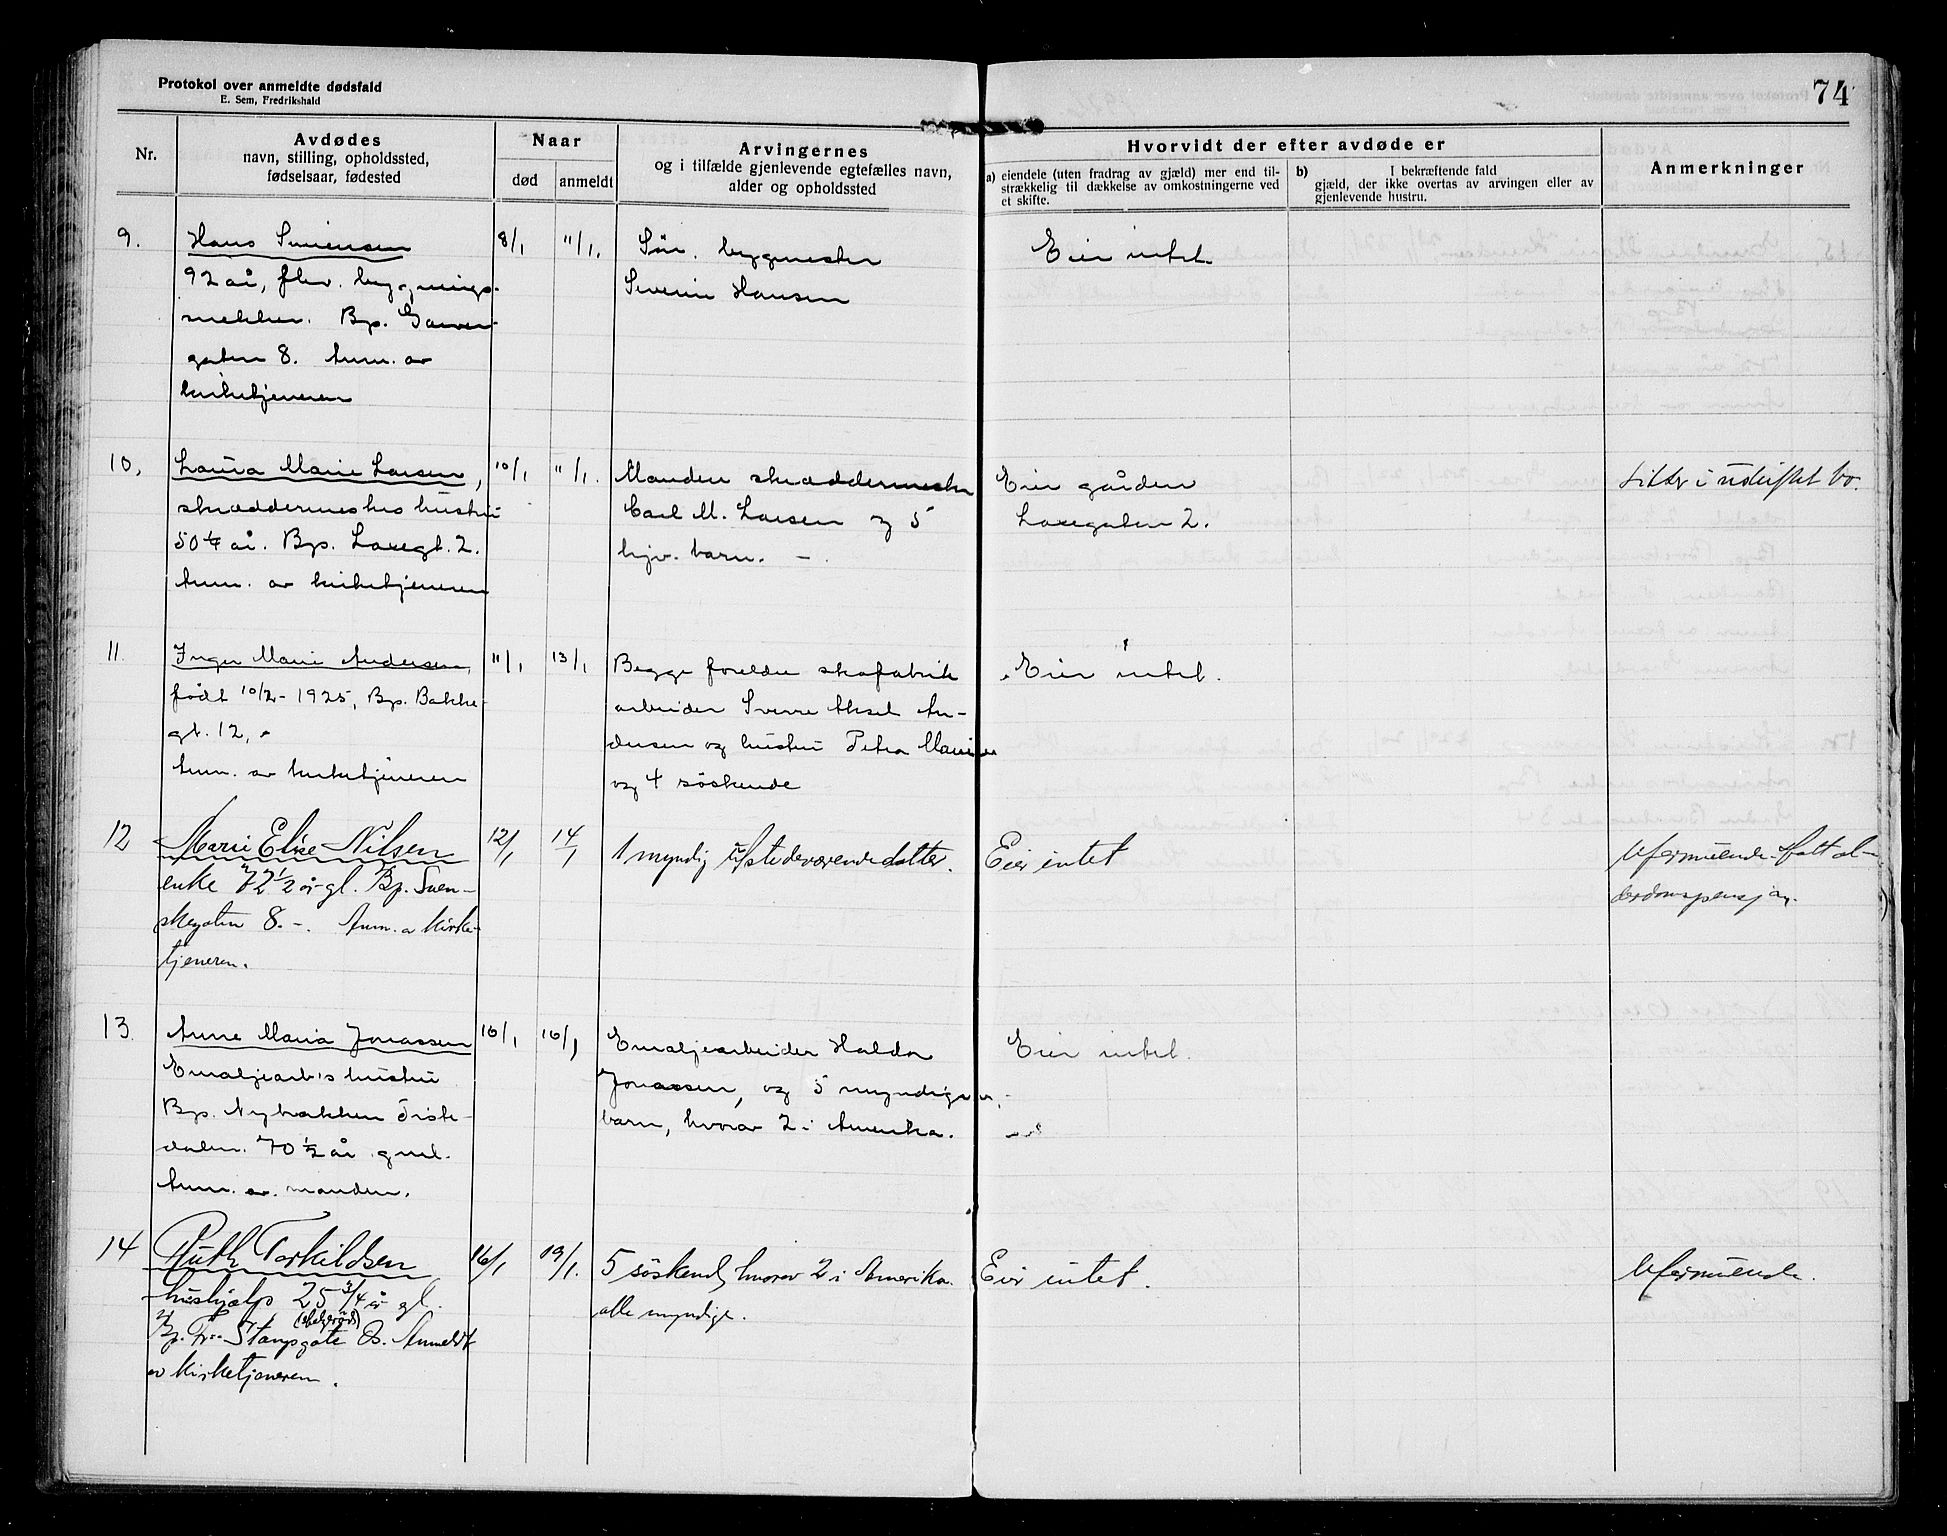 Protokol over anmeldte dødsfald
E. Sem, Fredrikshald
74
Nr.
Avdødes
navn, stilling, opholdssted,
fødselsaar, fødested
Naar
død
anmeldt
Arvingernes
og i tilfælde gjenlevende egtefælles navn,
alder og opholdssted
Hvorvidt der efter avdøde er
a) eiendele (uten fradrag av gjæld) mer end til-
strækkelig til dækkelse av omkostningerne ved
et skifte.
b) I bekræftende fald
gjæld, der ikke overtas av arvingen eller av
gjenlevende hustru.
Anmerkninger
9.
Hans
92 år, flev. bygnings-
Bp. Garver-
gaten 8. Anm. av
kirketjeneren
8/1
11/1.
Søn. bygmester
Severin Hansen
Eier intet.
10.
Laura Marie Larsen,
skræddermesters hustru
50 1/4 år. Bp. Laregt. 2.
Anm. av kirketjeneren
10/1
11/1.
Manden skræddermester
Carl M. Larsen og 5
hjv. barn. -
Eier gården
Laregaten 2.
Sitter i uskiftet bo.
11.
Inger Marie Andersen,
født 10/2 - 1925, Bp. Bakke-
gt. 12,
Anm. av kirketjeneren
11/1
13/1
Begge foreldre skofabrik
arbeider Sverre Aksel An-
dersen og hustru Petra
og 4 søskende
Eier intet.
12
Marie Elise Nilsen
enke 72 1/2 år gl. Bp. Sven-
skegaten 8. -. Anm. a kirke-
tjeneren.
12/1
14/1
1 myndig datter.
Eier intet
Uformuende - hatt al-
derdomspensjon.
13.
Anne Maria Jonassen
Emaljearb.s hustru
Bp. Nybakken Tiste-
dalen. 70 1/2 år gml.
Anm. av manden.
16/1
16/1
Emaljearbeider Haldor
Jonassen, og 5 myndige
barn, hvorav 2 i Amerika.
Eier intet.
14
Ruth Torkildsen
hushjælp 25 3/4 år gl.
Bp. Stangsgate 8. Anmeldt
av kirketjeneren.
16/1
19/1.
5 søskend, hvorav 2 i Amerika.
alle myndige.
Eier intet.
Uformuende.